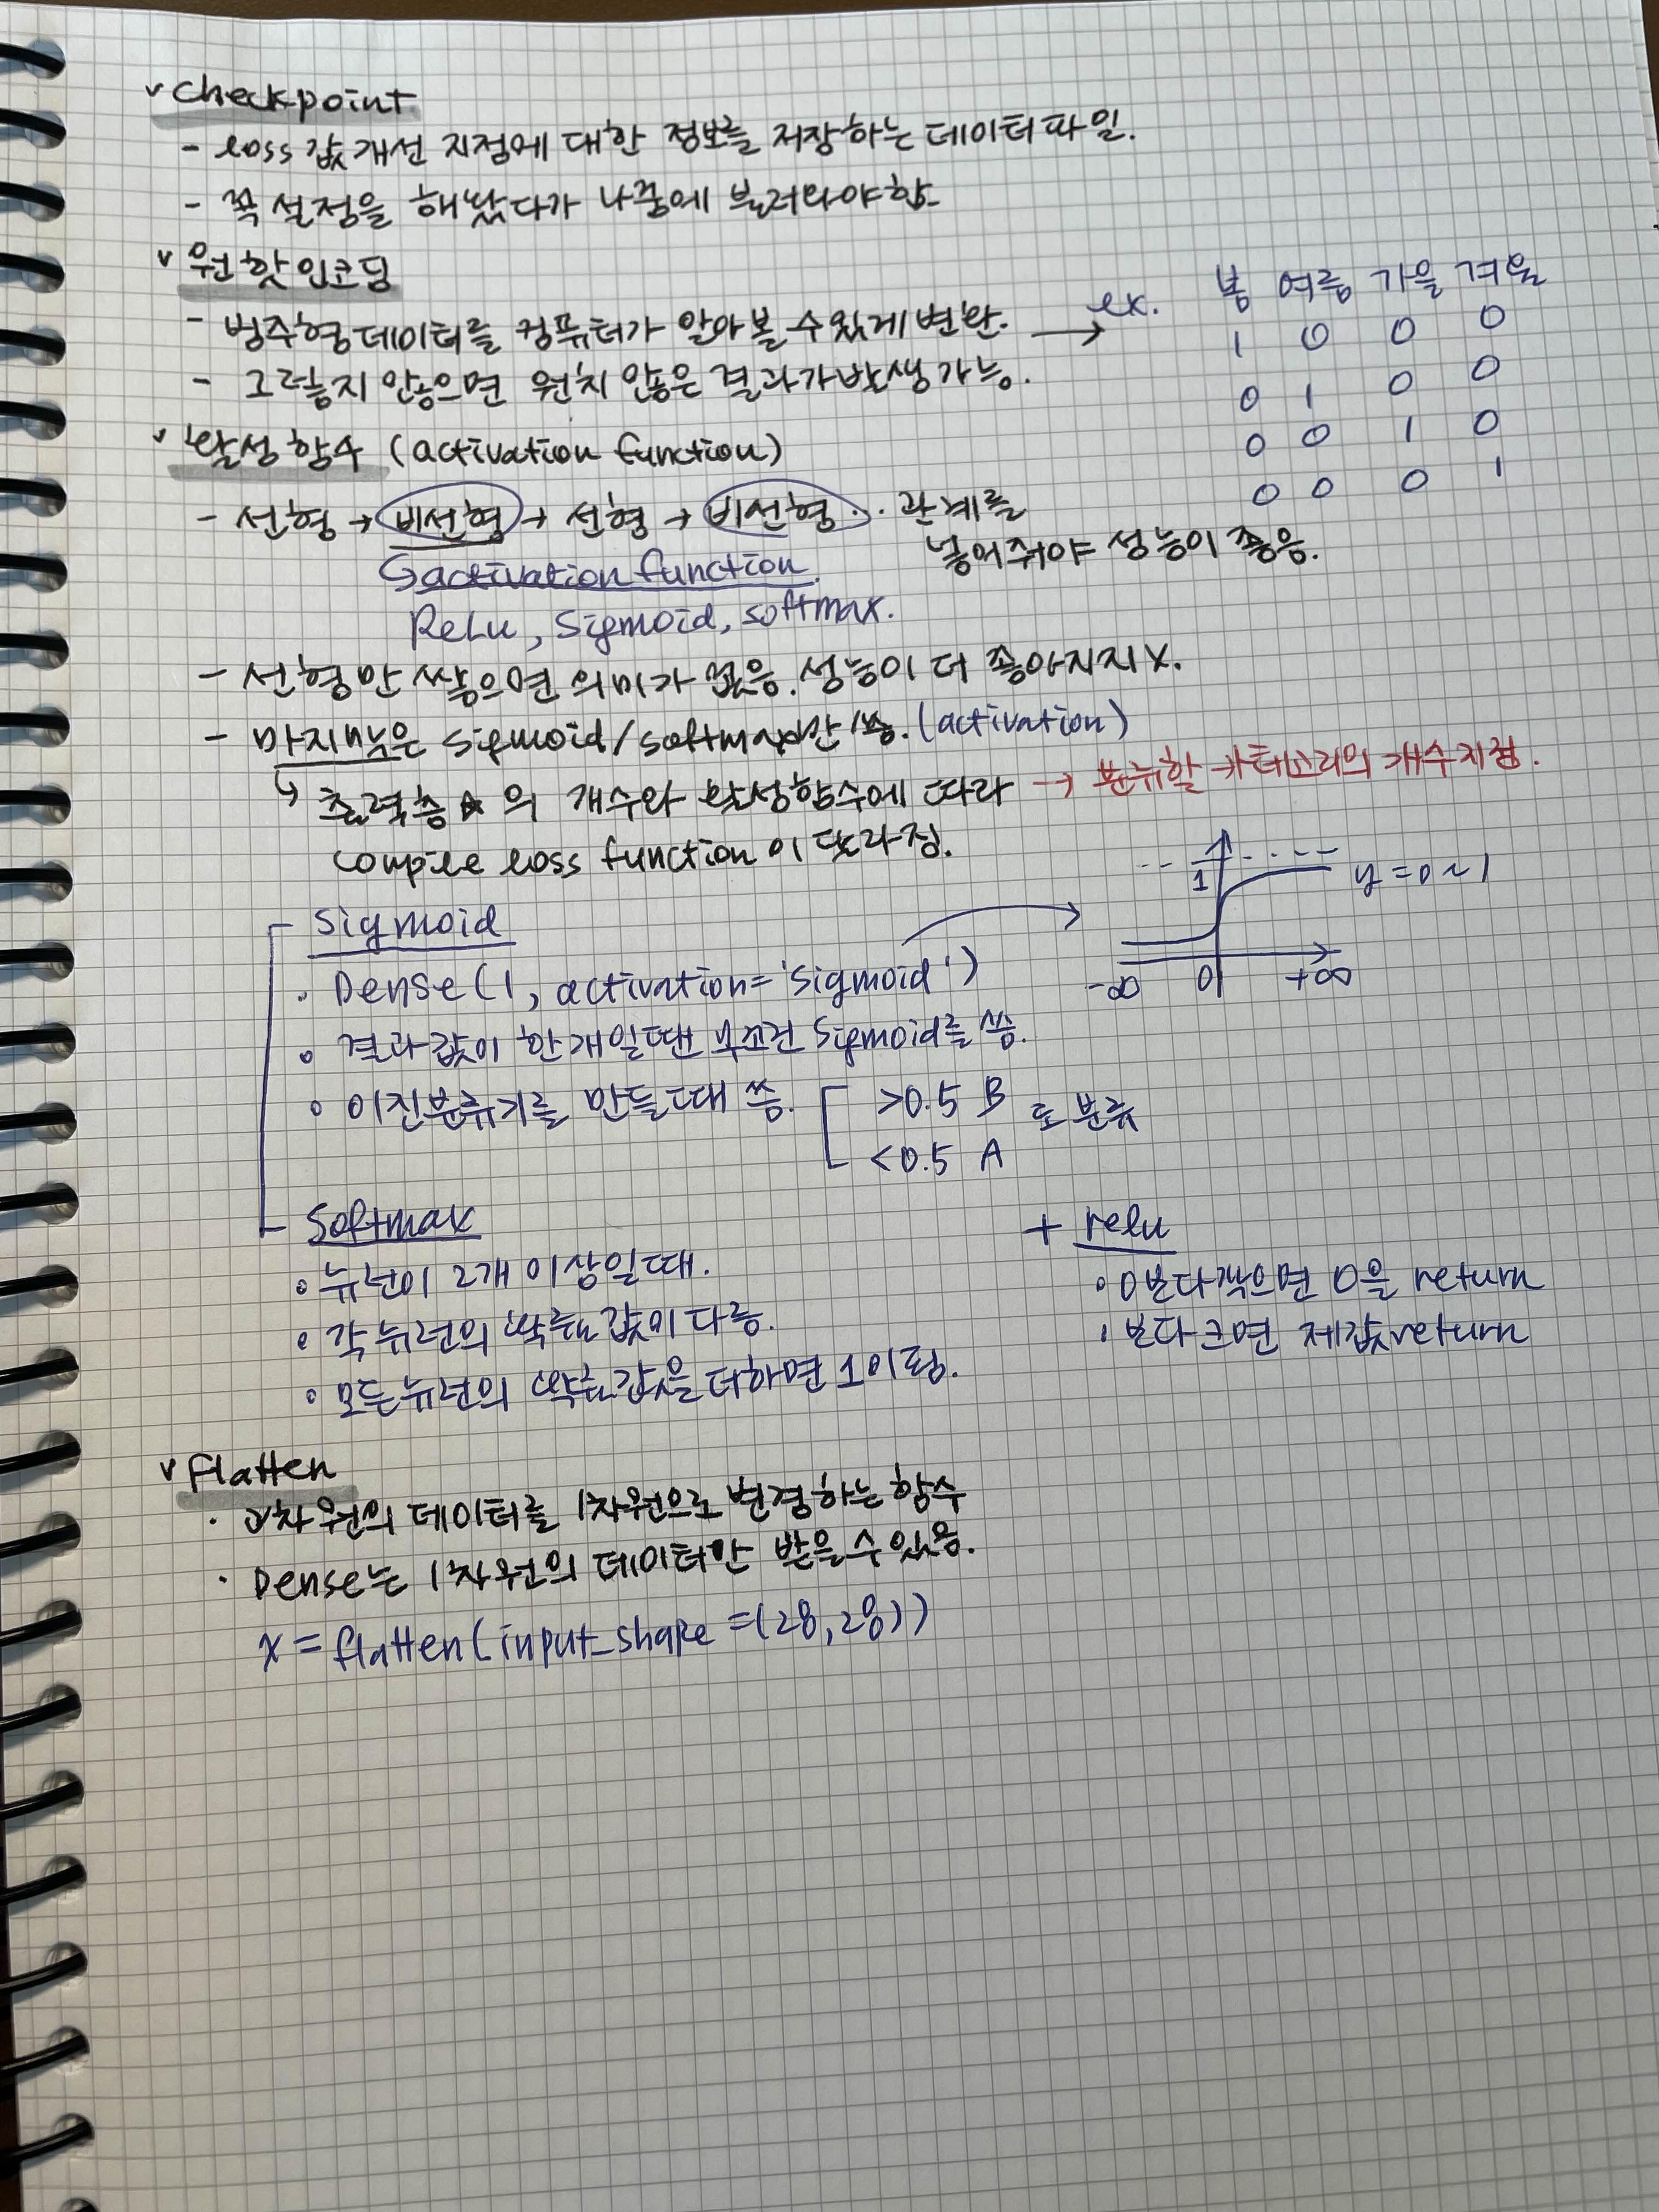 v checkpoint
- loss 값 개선 지점에 대한 정보를 저장하는 데이터 파일.
- 꼭 설정을 해놨다가 나중에 불러와야함
v 원핫인코딩
- 범주형데이터를 컴퓨터가 알아볼 수 있게 변환. → ex.
- 그렇지 않으면 원치 않은 결과가 발생 가능.
봄 여름 가을 겨울
1 0 0 0
0 1 0 0
0 0 1 0
0 0 0 1
v 활성함수 (activation function)
- 선형 → 비선형 → 선형 → 비선형 .. 관계를
넣어줘야 성능이 좋음.
↳ activation function
ReLu, Sigmoid, softmax.
- 선형만 쌓으면 의미가 없음. 성능이 더 좋아지지 X.
- 마지막은 sigmoid/softmax만 씀. (activation)
↳ 출력층의 개수와 활성함수에 따라 → 분류할 카테고리의 개수 지정.
compile loss function이 달라짐.
1 y = 0 ~ 1
-∞ 0 +∞
Sigmoid
. Dense(1, activation='sigmoid')
• 결과값이 한개일땐 무조건 sigmoid를 씀.
• 이진분류기를 만들때 씀. >0.5 B 로 분류
<0.5 A
Softmax
• 뉴런이 2개 이상일때.
• 각 뉴런의 값이 다름.
• 모든 뉴런의 값을 더하면 1이 됨.
+ relu
• 0보다 작으면 0을 return
• 보다 크면 제값 return
v flatten
· 차원의 데이터를 1차원으로 변경하는 함수
· Dense는 1차원의 데이터만 받을 수 있음.
x = flatten(input_shape=(28,28))